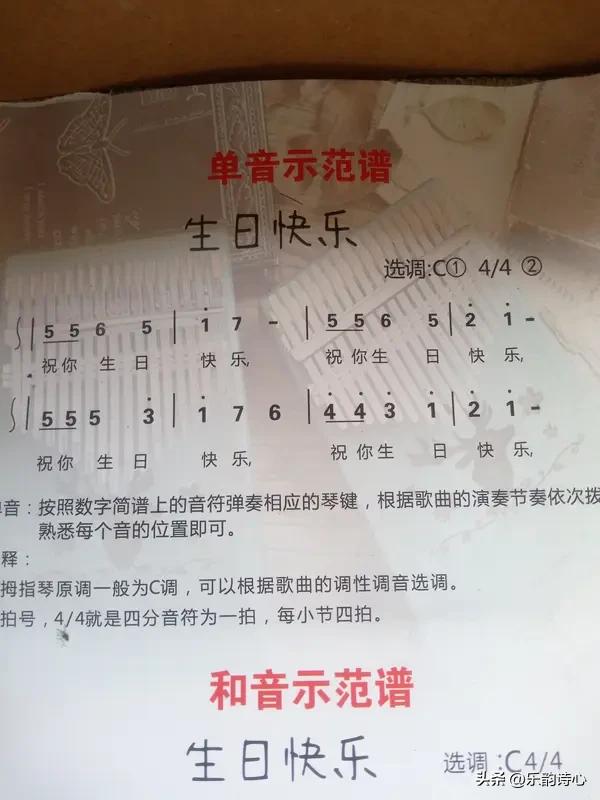 单音示范谱
生日快乐
选调:C① 4/4 ②
5 5 6 5 | 1̇ 7 - | 5 5 6 5 | 2̇ 1̇ -
祝你 生 日 快 乐, 祝你生 日 快 乐,
5 5 5 3̇ | 1̇ 7 6 | 4̇ 4̇ 3̇ 1̇ | 2̇ 1̇ -
祝你 生 日 快 乐, 祝你生 日 快 乐,
音:按照数字简谱上的音符弹奏相应的琴键,根据歌曲的演奏节奏依次拨
熟悉每个音的位置即可。
释:
拇指琴原调一般为C调,可以根据歌曲的调性调音选调。
拍号,4/4就是四分音符为一拍,每小节四拍。
和音示范谱
生日快乐
选调:C4/4
头条 @乐韵诗心